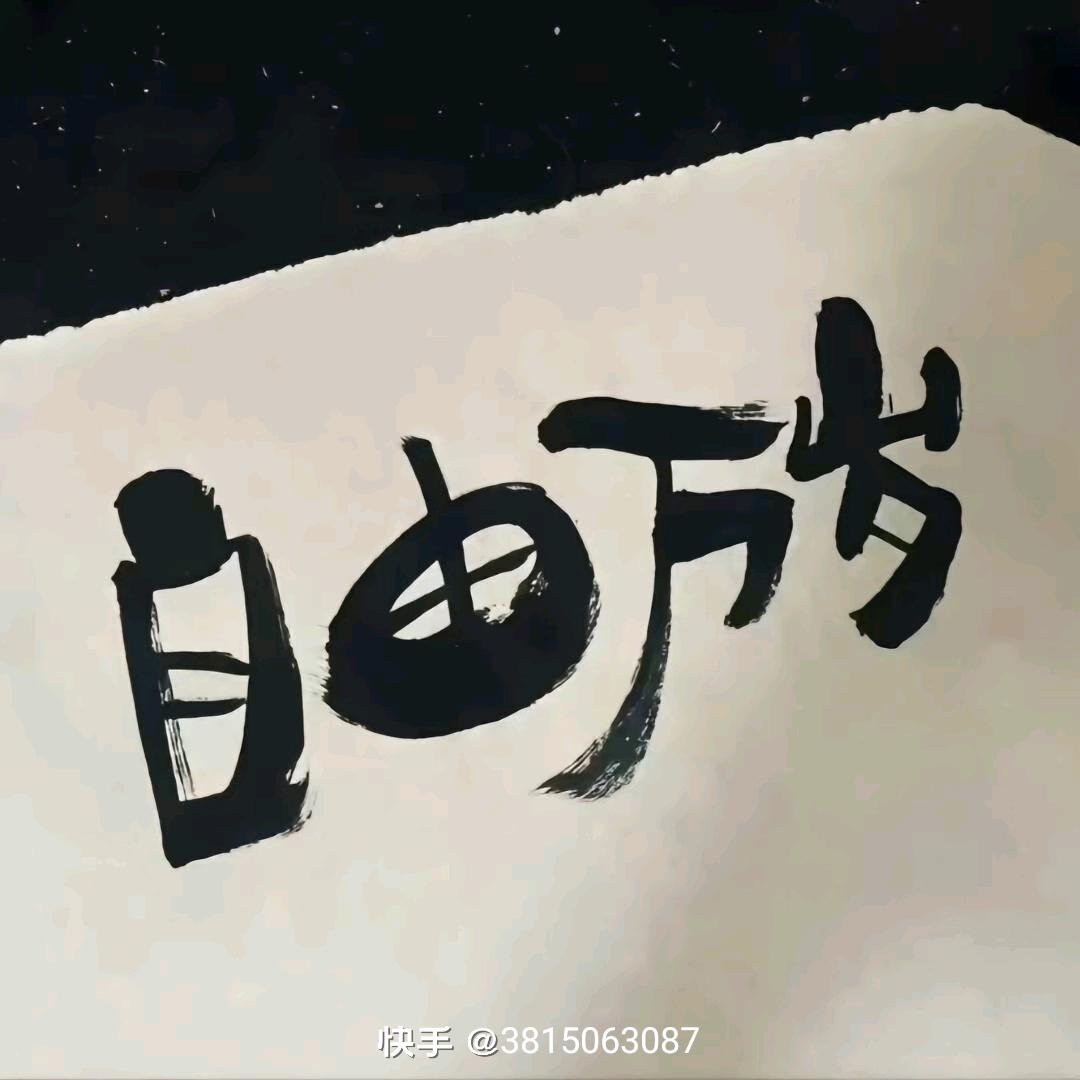 自由万岁
快手 @3815063087